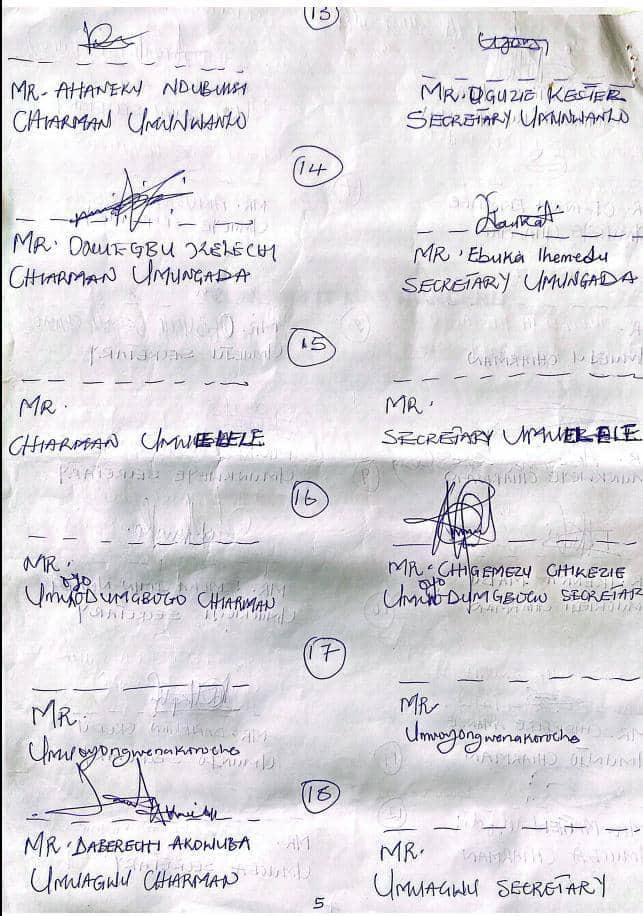 13
MR. AHANEKU NDUBUISI
CHIARMAN UMUNWANZO
MR. OGUZIE KESTER
SECRETARY UMUNWANZO
14
MR. KELECHI
CHIARMAN UMUNGADA
MR. Ebuka Ihemedu
SECRETARY UMUNGADA
15
MR.
CHIARMAN UMUELELE
MR.
SECRETARY UMUELELE
16
MR.
oyo
UMUODUMGBOGO CHIARMAN
MR. CHIGEMEZU CHIKEZIE
oyo
UMUODUMGBOGO SECRETAR
17
MR.
Umuoyongwenakoroche
MR
Umuoyongwenakoroche
18
MR. DABERECHI AKOWUBA
UMUAGWU CHIARMAN
MR.
UMUAGWU SECRETARY
5